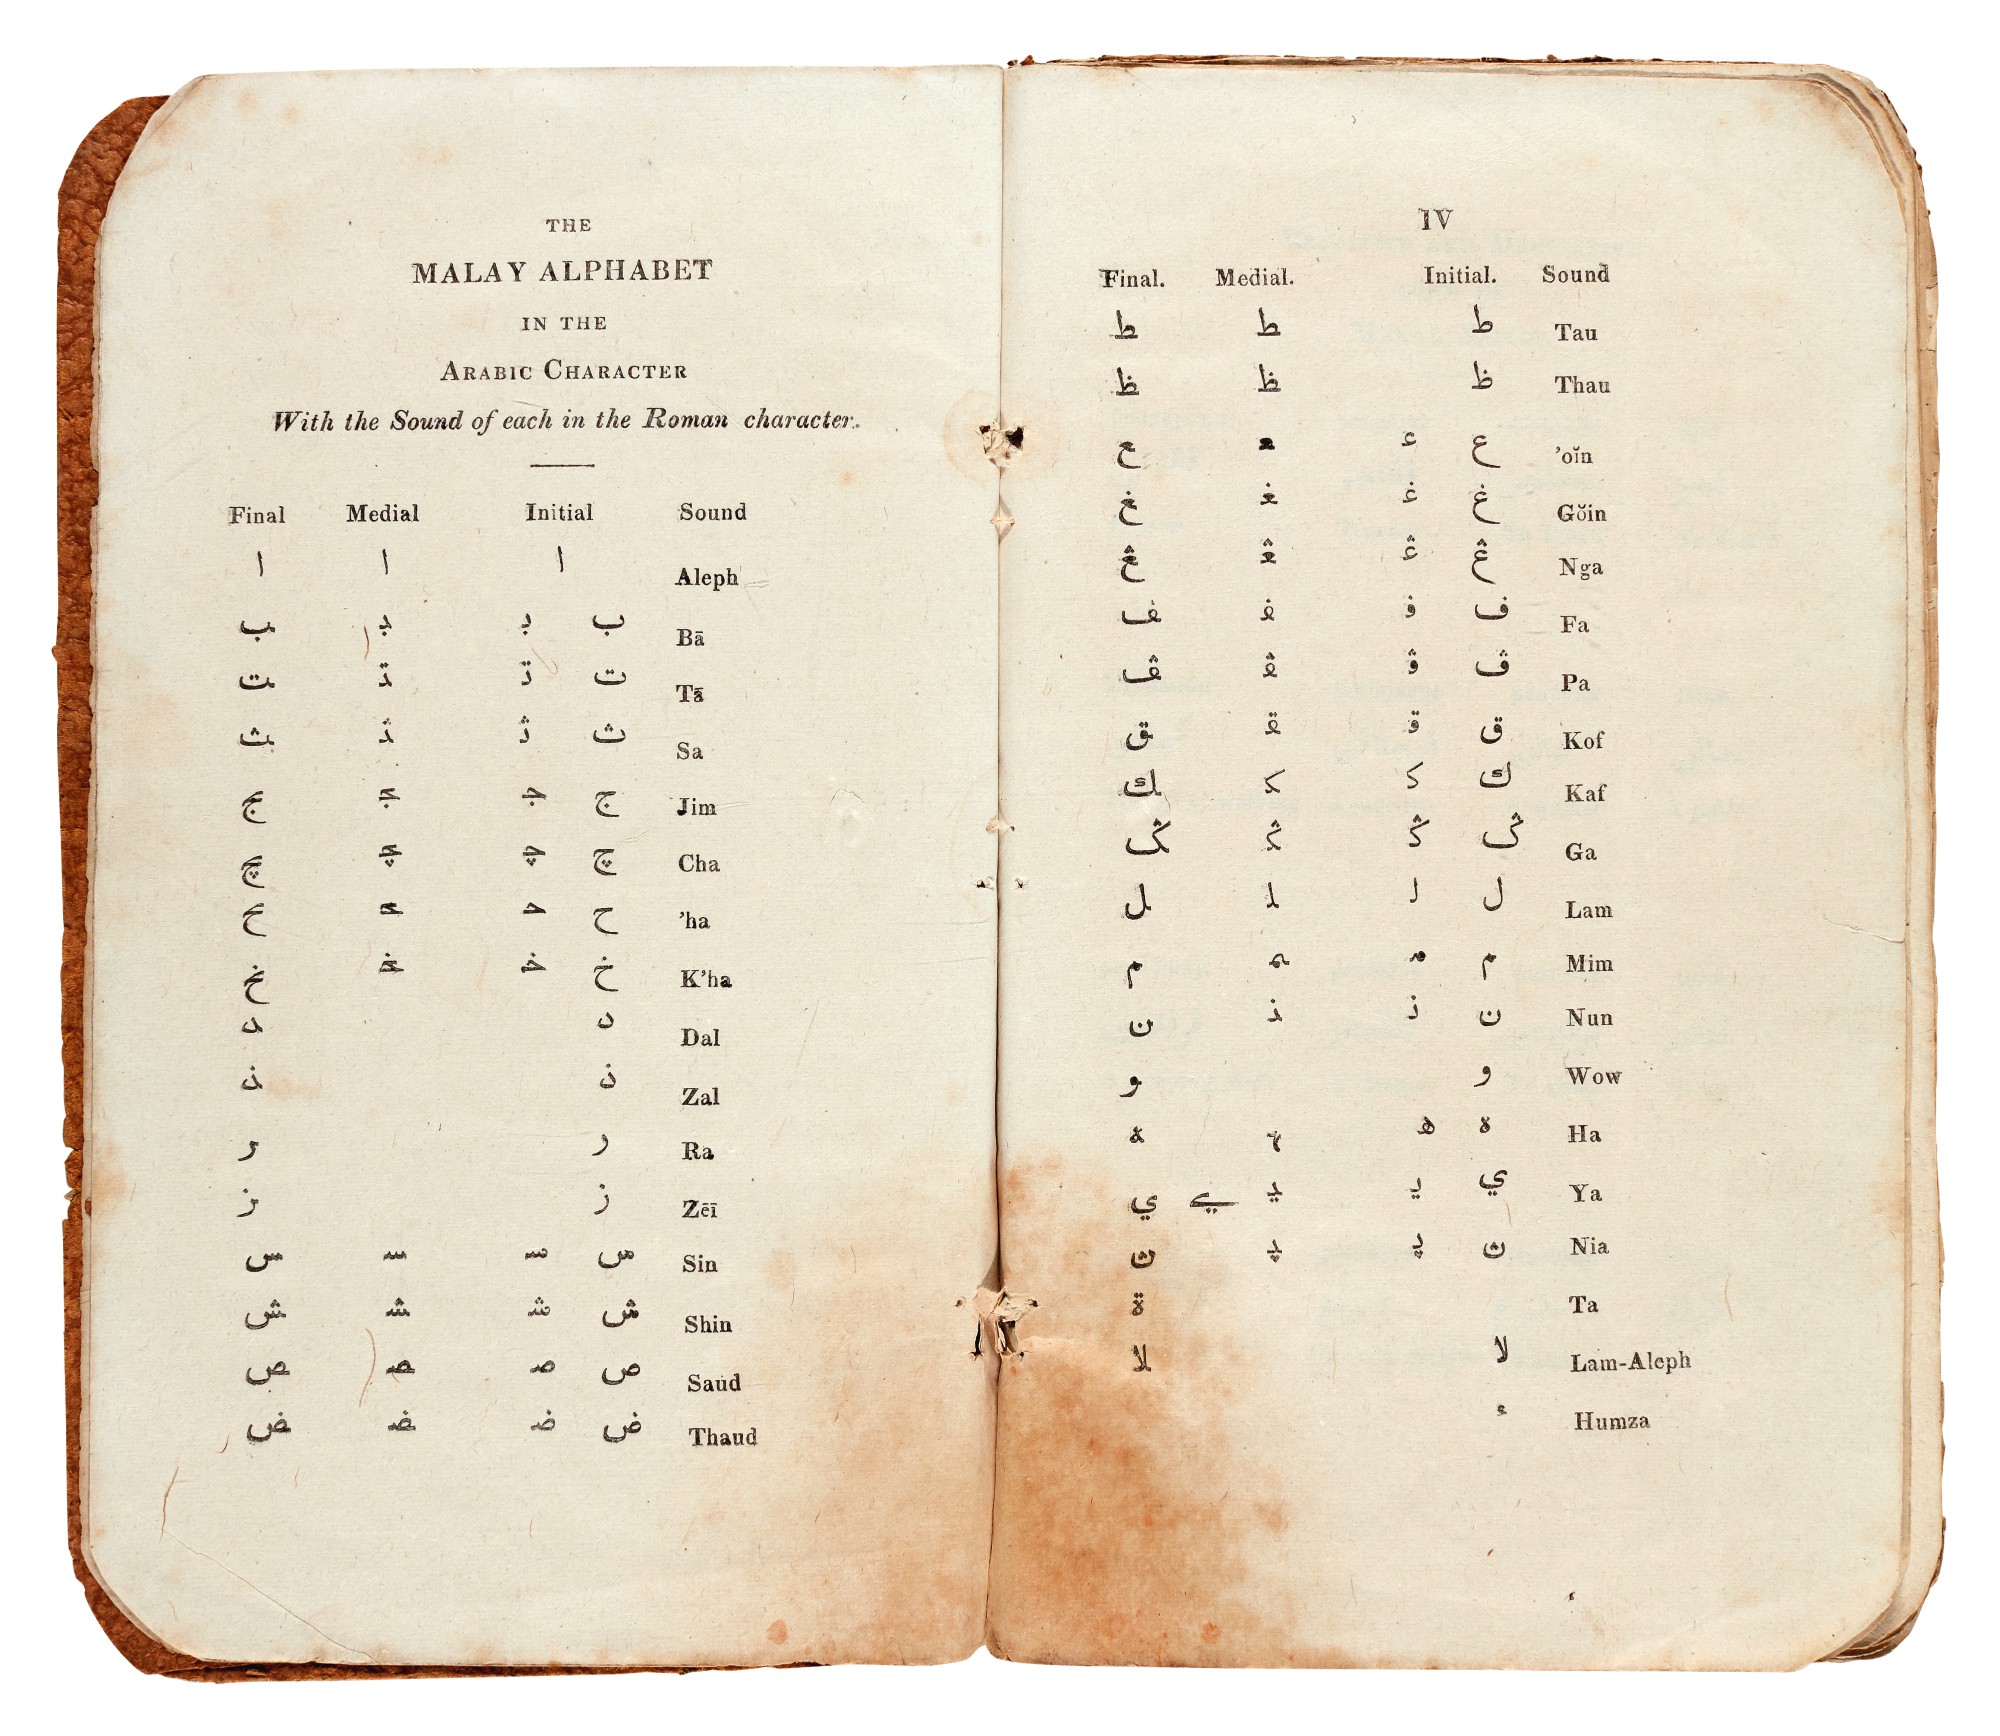 THE
MALAY ALPHABET
IN THE
ARABIC CHARACTER
With the Sound of each in the Roman character.
Final Medial Initial Sound
ا ا ا Aleph
ـب ـبـ بـ ب Bā
ـت ـتـ تـ ت Tā
ـث ـثـ ثـ ث Sa
ـج ـجـ جـ ج Jim
ـچ ـچـ چـ چ Cha
ـح ـحـ حـ ح 'ha
ـخ ـخـ خـ خ K'ha
ـد د Dal
ـذ ذ Zal
ـر ر Ra
ـز ز Zēī
ـس ـسـ سـ س Sin
ـش ـشـ شـ ش Shin
ـص ـصـ صـ ص Saud
ـض ـضـ ضـ ض Thaud
IV
Final. Medial. Initial. Sound
ـط ـطـ ط Tau
ـظ ـظـ ظ Thau
ـع ـعـ عـ ع 'oĭn
ـغ ـغـ غـ غ Gŏin
ـڠ ـڠـ ڠـ ڠ Nga
ـف ـفـ فـ ف Fa
ـڤ ـڤـ ڤـ ڤ Pa
ـق ـقـ قـ ق Kof
ـك ـكـ كـ ك Kaf
ـڬ ـڬـ ڬـ ڬ Ga
ـل ـلـ لـ ل Lam
ـم ـمـ مـ م Mim
ـن ـنـ نـ ن Nun
ـو و Wow
ـه ـهـ هـ ه Ha
ـي ـے ـيـ يـ ي Ya
ـث ـپـ پـ ن Nia
ة Ta
ـلا لا Lam-Aleph
ء Humza